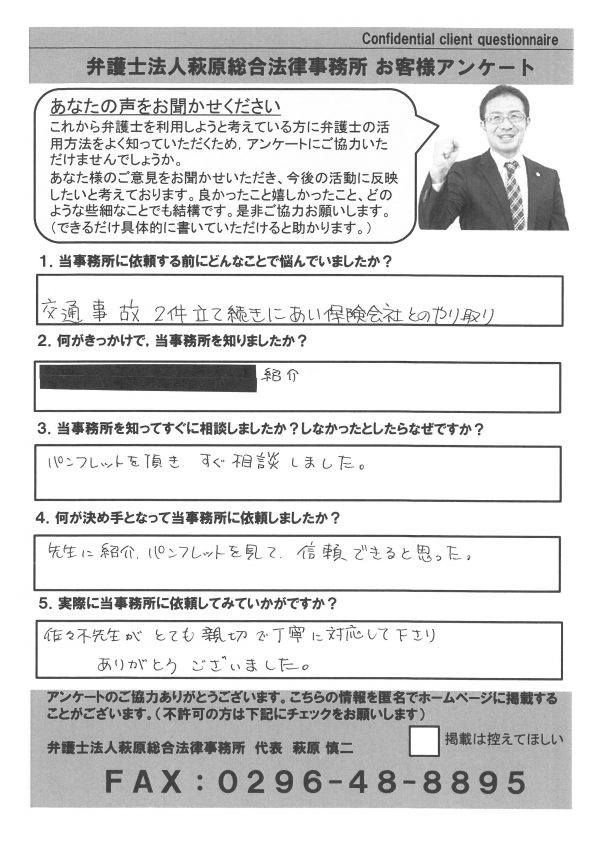 Confidential client questionnaire
弁護士法人萩原総合法律事務所 お客様アンケート
あなたの声をお聞かせください
これから弁護士を利用しようと考えている方に弁護士の活
用方法をよく知っていただくため，アンケートにご協力いた
だけませんでしょうか。
あなた様のご意見をお聞かせいただき、今後の活動に反映
したいと考えております。良かったこと嬉しかったこと、どの
ような些細なことでも結構です。是非ご協力お願いします。
（できるだけ具体的に書いていただけると助かります。）
１．当事務所に依頼する前にどんなことで悩んでいましたか？
交通事故 2件立て続きにあい保険会社とのやり取り
２．何がきっかけで，当事務所を知りましたか？
紹介
３．当事務所を知ってすぐに相談しましたか？しなかったとしたらなぜですか？
パンフレットを頂き すぐ相談しました。
４．何が決め手となって当事務所に依頼しましたか？
先生に紹介、パンフレットを見て、信頼できると思った。
５．実際に当事務所に依頼してみていかがですか？
佐々木先生が とても親切で丁寧に対応して下さり
ありがとう ございました。
アンケートのご協力ありがとうございます。こちらの情報を匿名でホームページに掲載する
ことがございます。（不許可の方は下記にチェックをお願いします）
弁護士法人萩原総合法律事務所 代表 萩原 慎二
掲載は控えてほしい
ＦＡＸ：０２９６－４８－８８９５